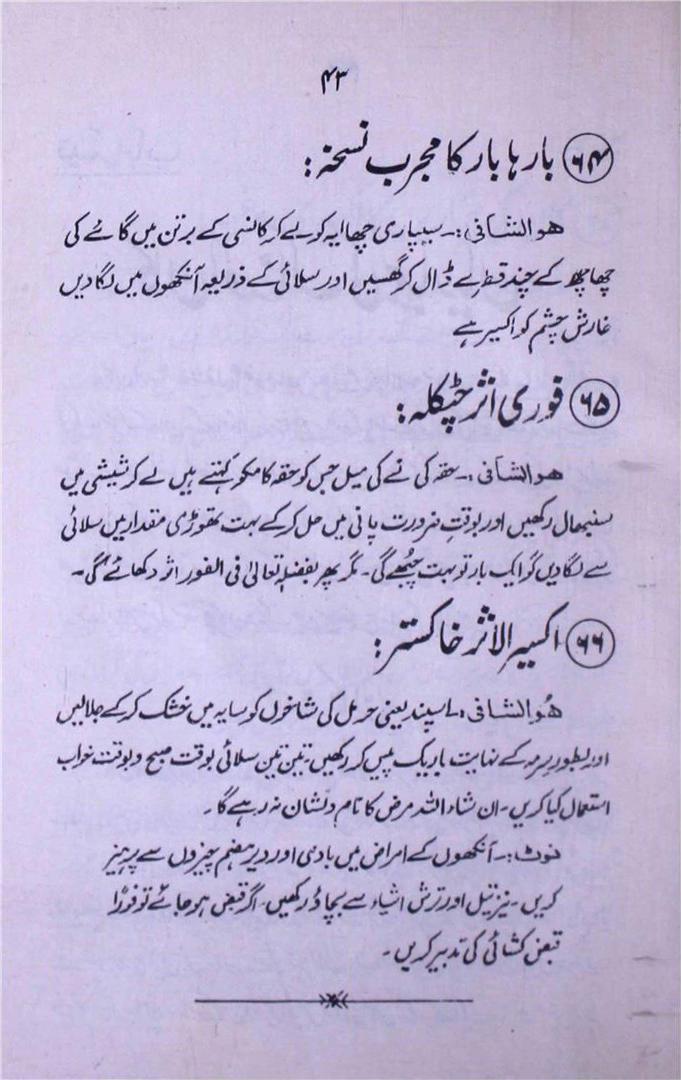 ۴۳
۶۴ بارہا بار کا مجرب نسخہ :
ھوالشافی :۔ سپیاری چھالیہ کو لے کر کانسی کے برتن میں گائے کی
چھاچھ کے چند قطرے ڈال کر گھسیں اور سلائی کے ذریعہ آنکھوں میں لگا دیں
خارش چشم کو اکسیر ہے
۶۵ فوری اثر چٹکلہ :
ھوالشافی :۔ حقہ کی نے کی میل جس کو حقہ کا مکو کہتے ہیں لے کر شیشی میں
سنبھال رکھیں اور بوقتِ ضرورت پانی میں حل کر کے بہت تھوڑی مقدار میں سلائی
سے لگا دیں گو ایک بار تو بہت چبھے گی۔ مگر پھر بفضلہ تعالیٰ فی الفور اثر دکھائے گی۔
۶۶ اکسیر الاثر خاکستر :
ھُوالشافی :۔ اسپند یعنی حرمل کی شاخوں کو سایہ میں خشک کر کے جلا لیں
اور بطور سرمہ کے نہایت باریک پیس کر رکھیں۔ تین تین سلائی بوقت صبح و بوقت خواب
استعمال کیا کریں۔ ان شاء اللہ مرض کا نام و نشان نہ رہے گا۔
نوٹ :۔ آنکھوں کے امراض میں بادی اور دیر ہضم چیزوں سے پرہیز
کریں۔ نیز تیل اور ترش اشیاء سے بچاؤ رکھیں۔ اگر قبض ہو جائے تو فوراً
قبض کشائی کی تدبیر کریں۔